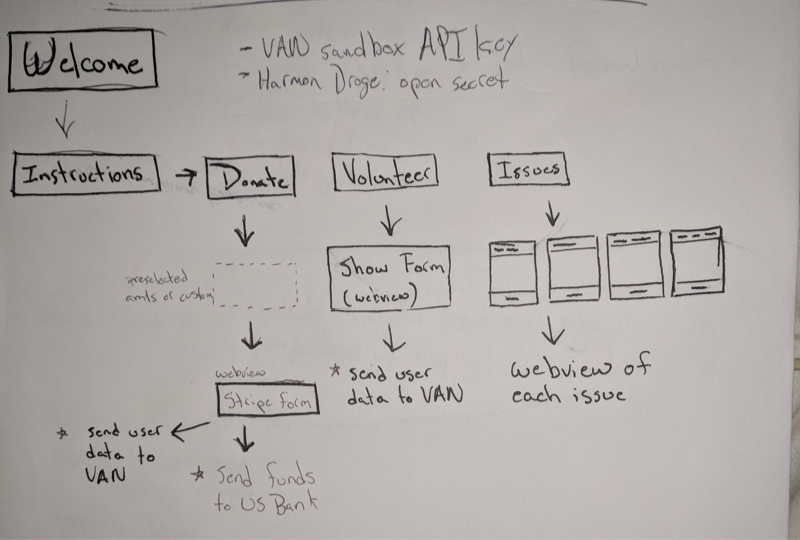 Welcome
- VAN sandbox API key
- Harmon Droge: open secret
Instructions
Donate
Volunteer
Issues
preselected
amts or custom
Show Form
(webview)
webview
Stripe form
* send user
data to VAN
webview of
each issue
* send user
data to
VAN
* Send funds
to US Bank